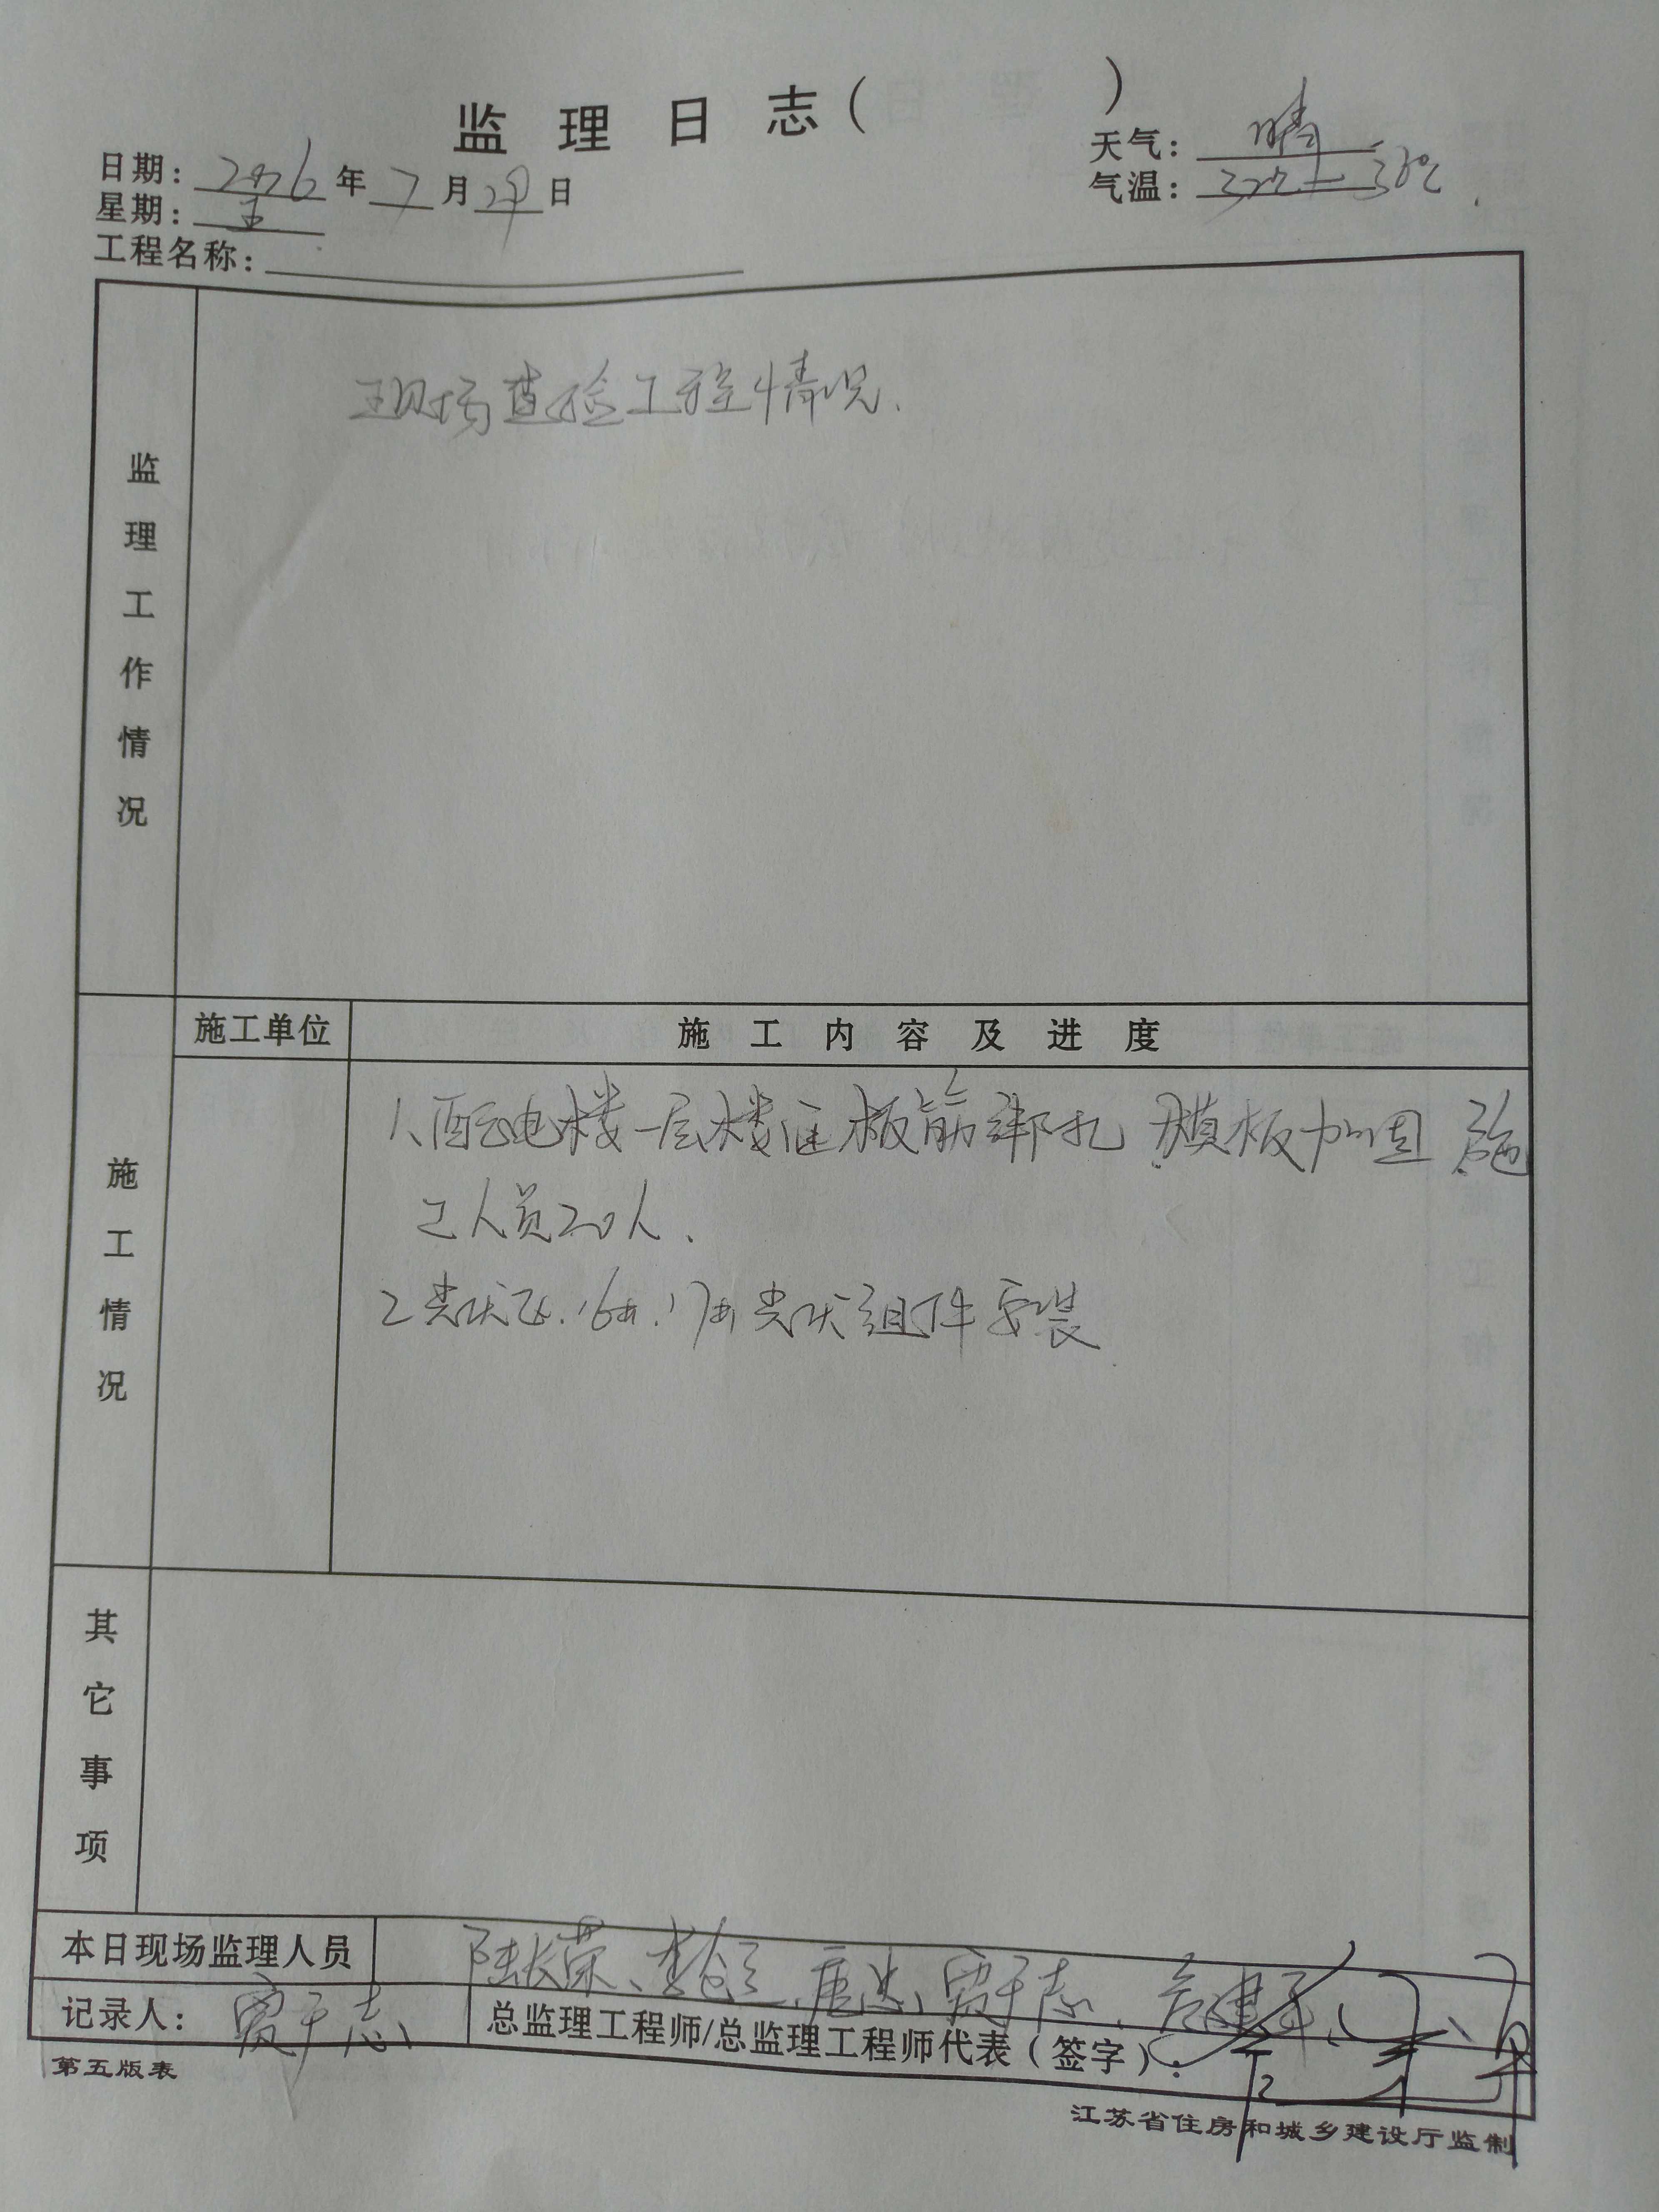 监理日志（ ）
日期： 2016 年 7 月 29 日
天气： 晴
星期： 五
气温： 27 — 38℃
工程名称：
监理工作情况
现场查验工程情况.
施工情况
施工单位
施工内容及进度
1、配电楼一层楼面板筋绑扎 模板加固 施
工人员20人.
2 光伏区.16#.17#光伏组件安装
其它事项
本日现场监理人员
陆长荣、李 、唐 、贾于志、 建军、
记录人： 贾于志
总监理工程师/总监理工程师代表（签字）：
第五版表
江苏省住房和城乡建设厅监制